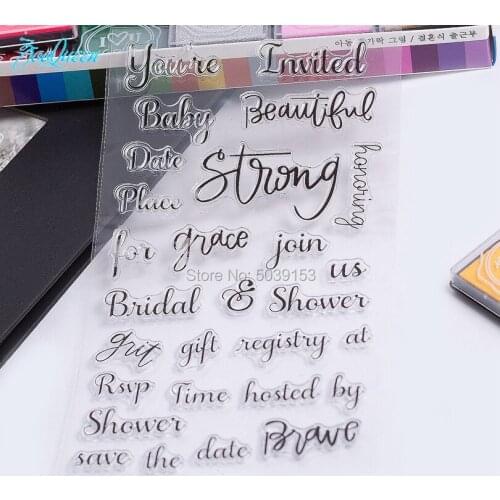 ZooQueen
I ♡ U
아동 손가락 그림 / 결혼식 출근부
You're Invited
Baby Beautiful
Date Strong honoring
Place
for grace join
Shop No.: 5039153 Store
us
Bridal & Shower
grit gift registry at
Rsvp Time hosted by
Shower
save the date Brave